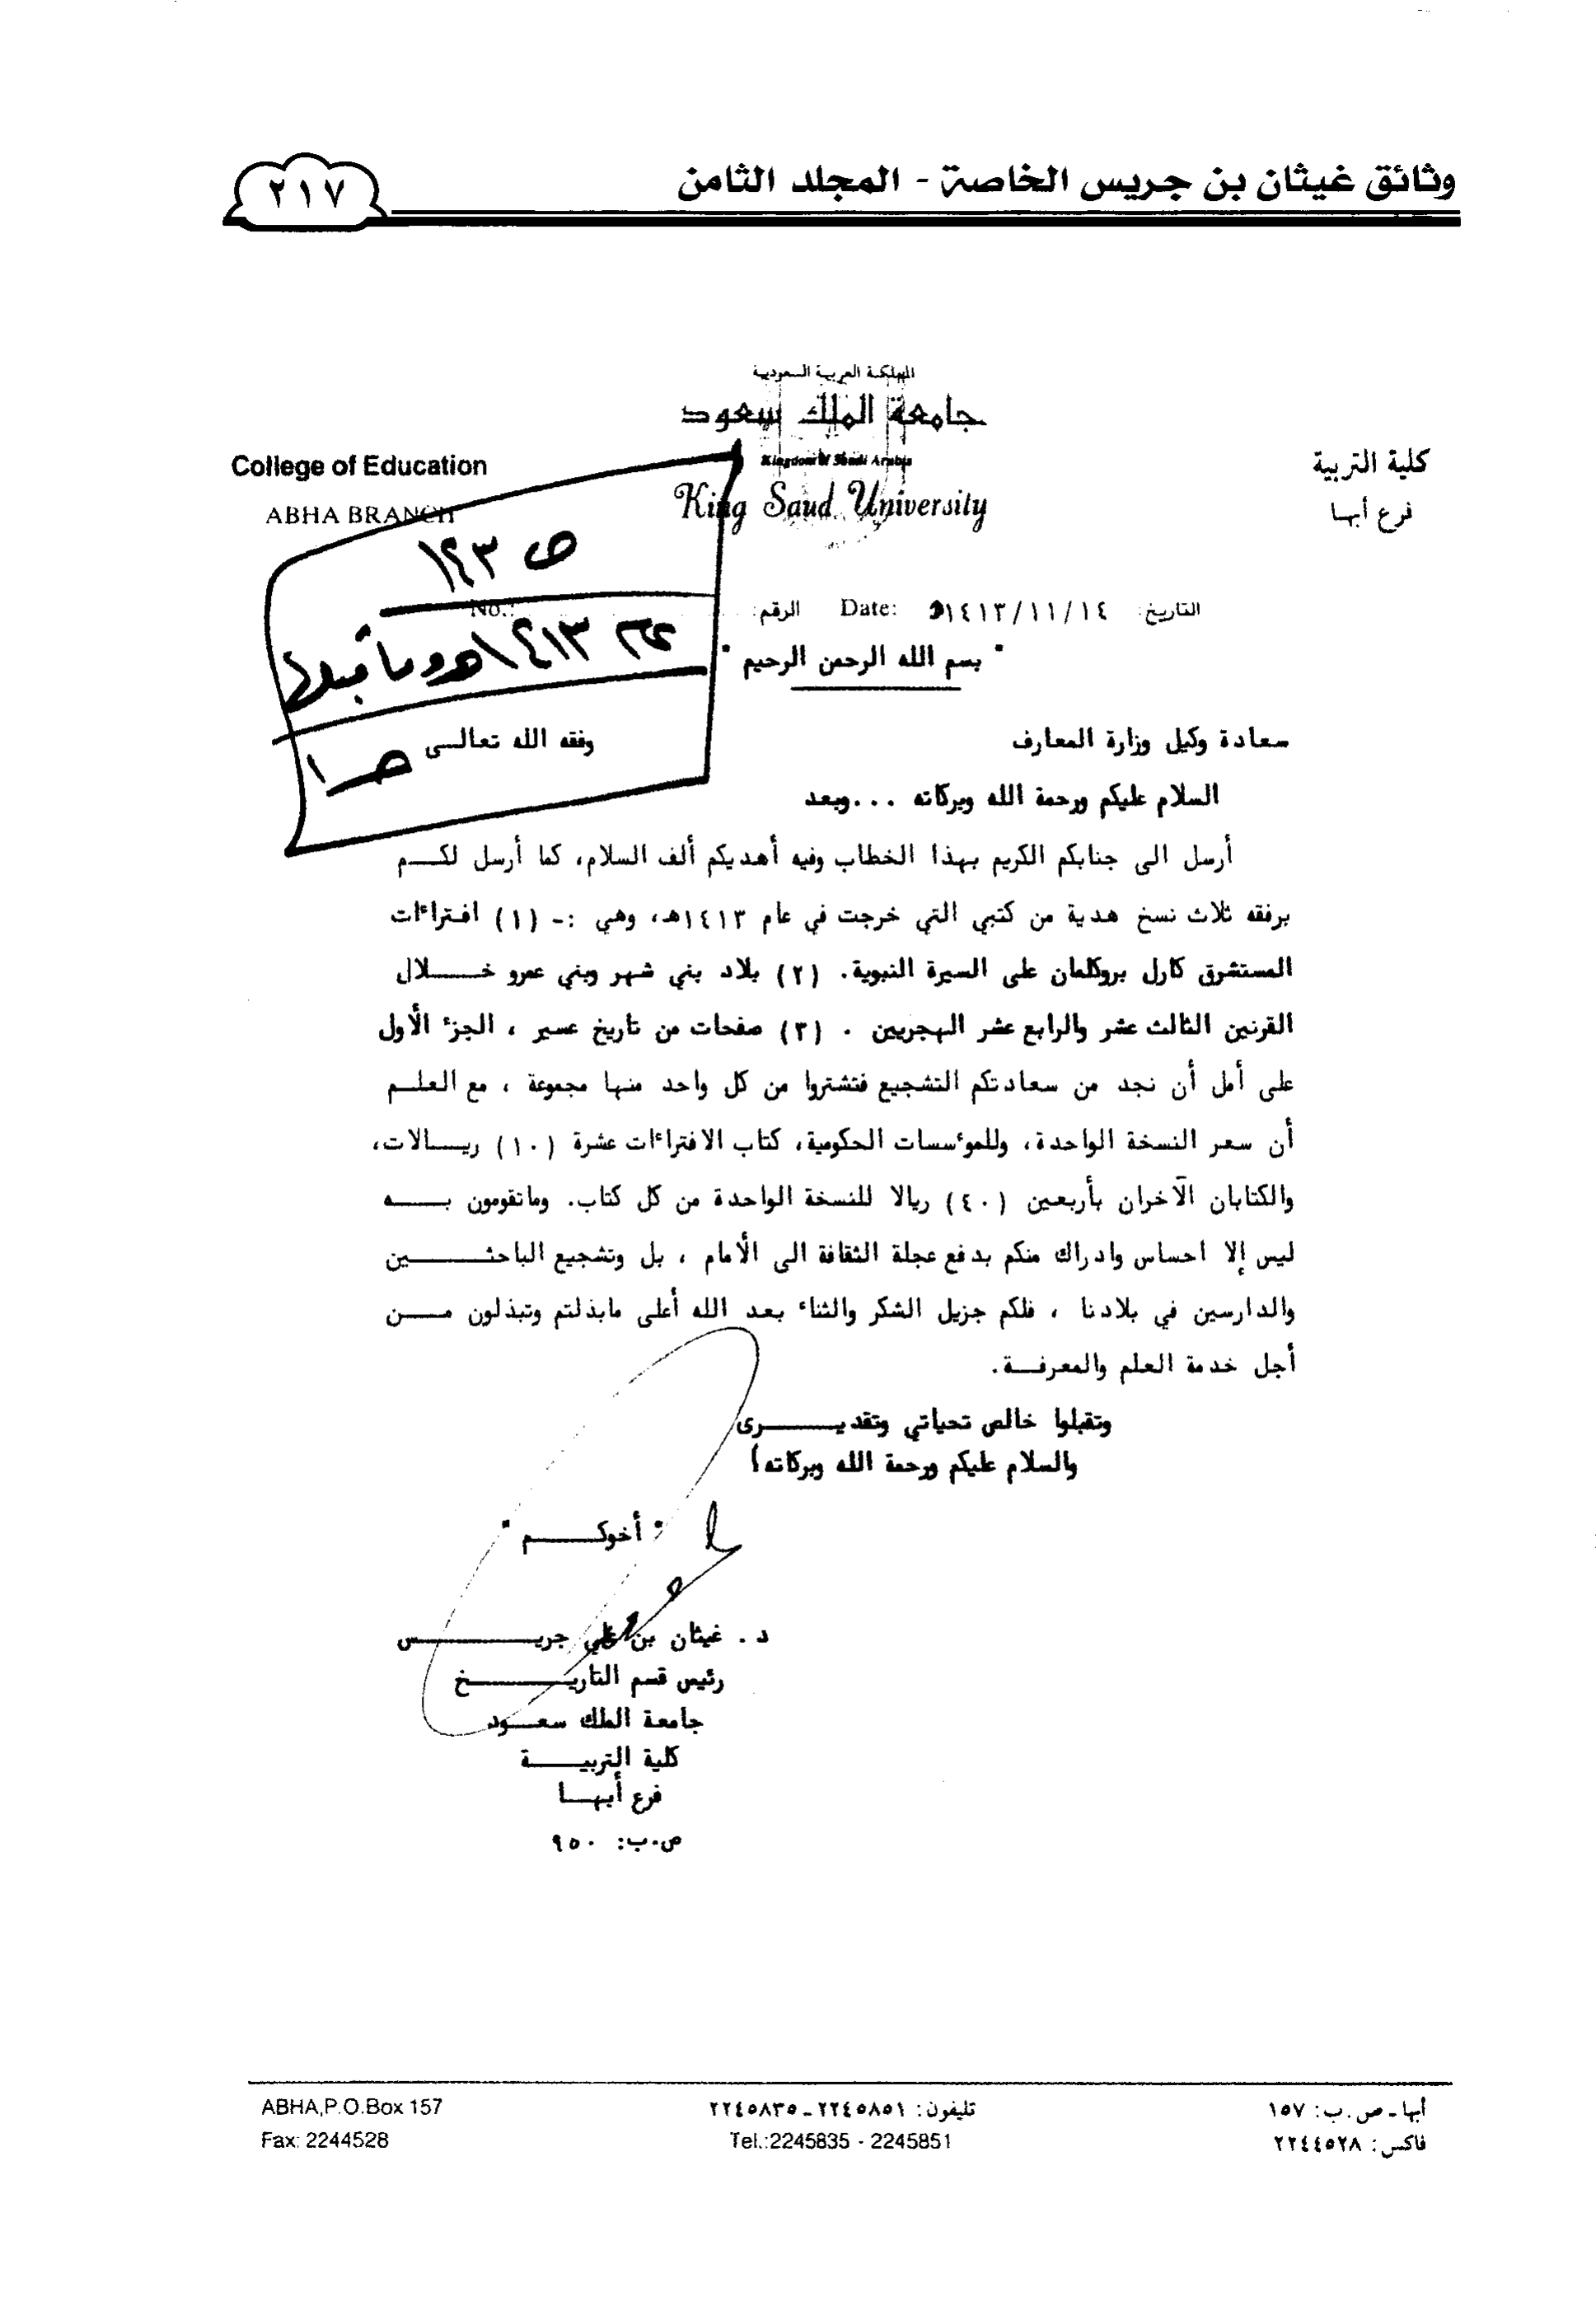 وثائق غيثان بن جريس الخاصة - المجلد الثامن
٢١٧
المملكة العربية السعودية
جامعة الملك سعود
Kingdom of Saudi Arabia
King Saud University
كلية التربية
فرع أبها
College of Education
ABHA BRANCH
ص ١٤٣
١٤١٣هـ وما قبلها
ص ١
التاريخ: ١٤١٣/١١/١٤هـ Date: الرقم: No.:
" بسم الله الرحمن الرحيم "
سعادة وكيل وزارة المعارف وفقه الله تعالـى
السلام عليكم ورحمة الله وبركاته ...وبعد
أرسل الى جنابكم الكريم بهذا الخطاب وفيه أهديكم ألف السلام، كما أرسل لكـــم
برفقه ثلاث نسخ هدية من كتبي التي خرجت في عام ١٤١٣هـ، وهي :- (١) افتراءات
المستشرق كارل بروكلمان على السيرة النبوية. (٢) بلاد بني شهر وبني عمرو خـــلال
القرنين الثالث عشر والرابع عشر الهجريين . (٣) صفحات من تاريخ عسير ، الجزء الأول
على أمل أن نجد من سعادتكم التشجيع فتشتروا من كل واحد منها مجموعة ، مع العلـم
أن سعر النسخة الواحدة، وللموءسسات الحكومية، كتاب الافتراءات عشرة (١٠) ريــالات،
والكتابان الآخران بأربعين (٤٠) ريالا للنسخة الواحدة من كل كتاب. وماتقومون بـــه
ليس إلا احساس وادراك منكم بدفع عجلة الثقافة الى الأمام ، بل وتشجيع الباحثـــــين
والدارسين في بلادنا ، فلكم جزيل الشكر والثناء بعد الله أعلى مابذلتم وتبذلون مـــن
أجل خدمة العلم والمعرفـــة.
وتقبلوا خالص تحياتي وتقديـــــرى
والسلام عليكم ورحمة الله وبركاته)
" أخوكـــــم "
د . غيثان بن علي جريـــــــس
رئيس قسم التاريـــــــخ
جامعة الملك سعـــود
كلية التربيـــــة
فرع أبهـــا
ص.ب: ٩٥٠
أبها ـ ص.ب: ١٥٧
فاكس: ٢٢٤٤٥٢٨
تليفون: ٢٢٤٥٨٥١ ـ ٢٢٤٥٨٣٥
Tel.:2245835 - 2245851
ABHA,P.O.Box 157
Fax: 2244528